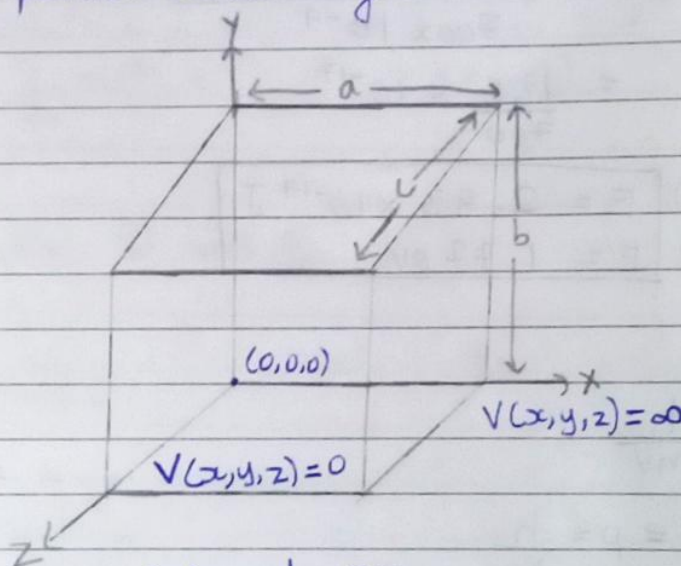 y
a
c
b
(0,0,0)
x
V(x,y,z)=∞
V(x,y,z)=0
z